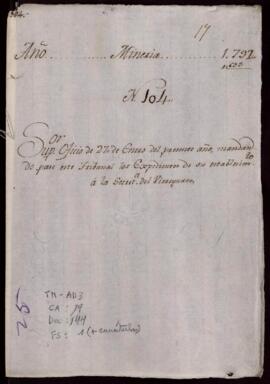 304.
17
Año, Mineria 1.791
N. 104.
Supor. Oficio de 27 de Enero del presente año, mandan-
do pase este Tribunal los Expedientes de su establecimto.
á la Secreta. del Vireynato.
25
TM-AD3
CA: 19
Doc: 144
FS: 1 (+ carátula)